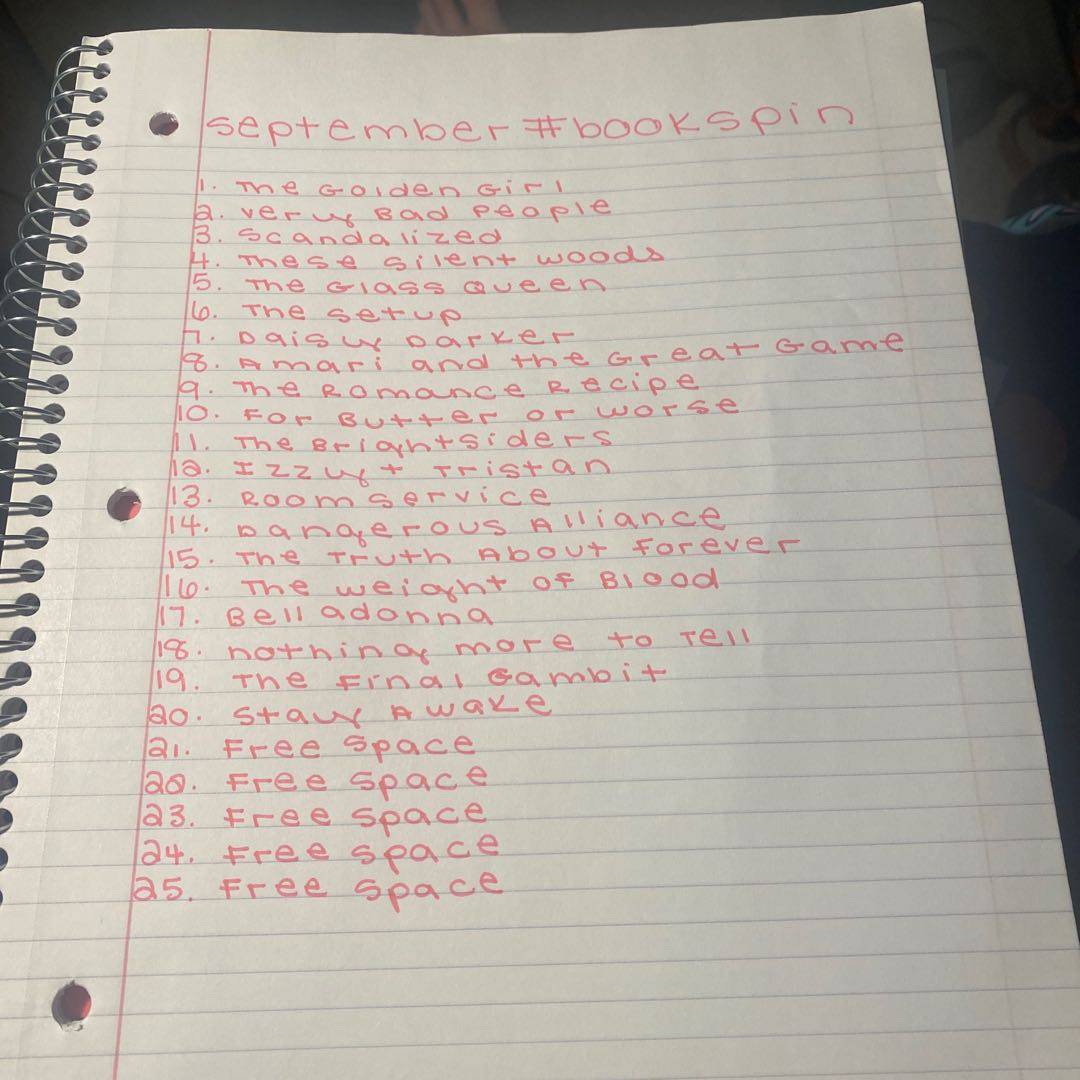 september #bookspin
1. The Golden Girl
2. Very Bad People
3. Scandalized
4. These Silent Woods
5. The Glass Queen
6. The Setup
7. Daisy Darker
8. Amari and the Great Game
9. The Romance Recipe
10. For Butter or Worse
11. The Brightsiders
12. Izzy + Tristan
13. Room Service
14. Dangerous Alliance
15. The Truth About Forever
16. The Weight of Blood
17. Belladonna
18. nothing more to Tell
19. The Final Gambit
20. Stay Awake
21. Free Space
20. Free Space
23. Free Space
24. Free Space
25. Free Space